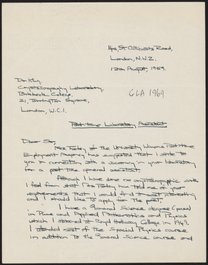 St Cuthberts Road,
London, N.W.2.
12th August, 1969.
Dr. King
Crystallography Laboratory,
Birkbeck College,
21, Torrington Square,
London, W.C.1.
GLA 1969
Part-time Laboratory Assistant
Dear Sir,
Miss of the University Women's Part-time
Employment has suggested that I write to
you in connection with a vacancy in your laboratory
for a post
Although I have no crystallographic
I feel from what Miss has told me of your
requirements that I should find it most interesting
and I should like to apply for the post.
I have a General Science degree (pass)
in Pure and Applied Mathematics and Physics
which I obtained at Royal Holloway College in 1949.
I attended most of the Special Physics course
in addition to the General Science course and